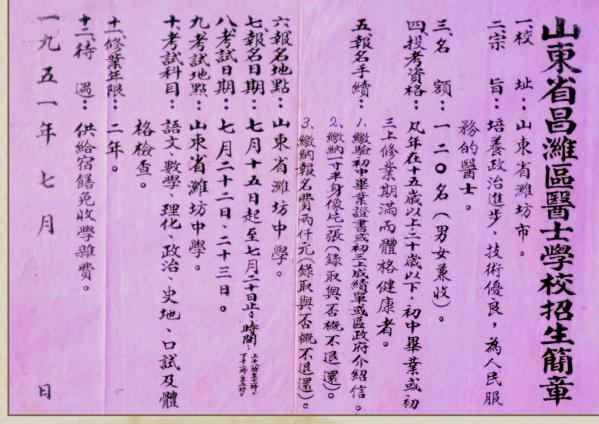 山東省昌濰區醫士學校招生簡章
一校　址：山東省濰坊市。
二宗　旨：培養政治進步，技術優良，為人民服
務的醫士。
三、名　額：一二〇名（男女兼收）。
四投考資格：凡年在十五歲以上三十歲以下，初中畢業或初
三上修業期滿而體格健康者。
五報名手續：1、繳驗初中畢業證書或初三上成績單或區政府介紹信。
2、繳納一寸半身像片一張（錄取與否概不退還）。
3、繳納報名費兩仟元（錄取與否概不退還）。
六報名地點：山東省濰坊中學。
七報名日期：七月十五日起至七月二十日止。時間：
八考試日期：七月二十二、二十三日。
九考試地點：山東省濰坊中學。
十考試科目：語文、數學、理化、政治、史地、口試及體
格檢查。
十一修業年限：二年。
十二、待　遇：供給宿膳免收學雜費。
一九五一年七月　日